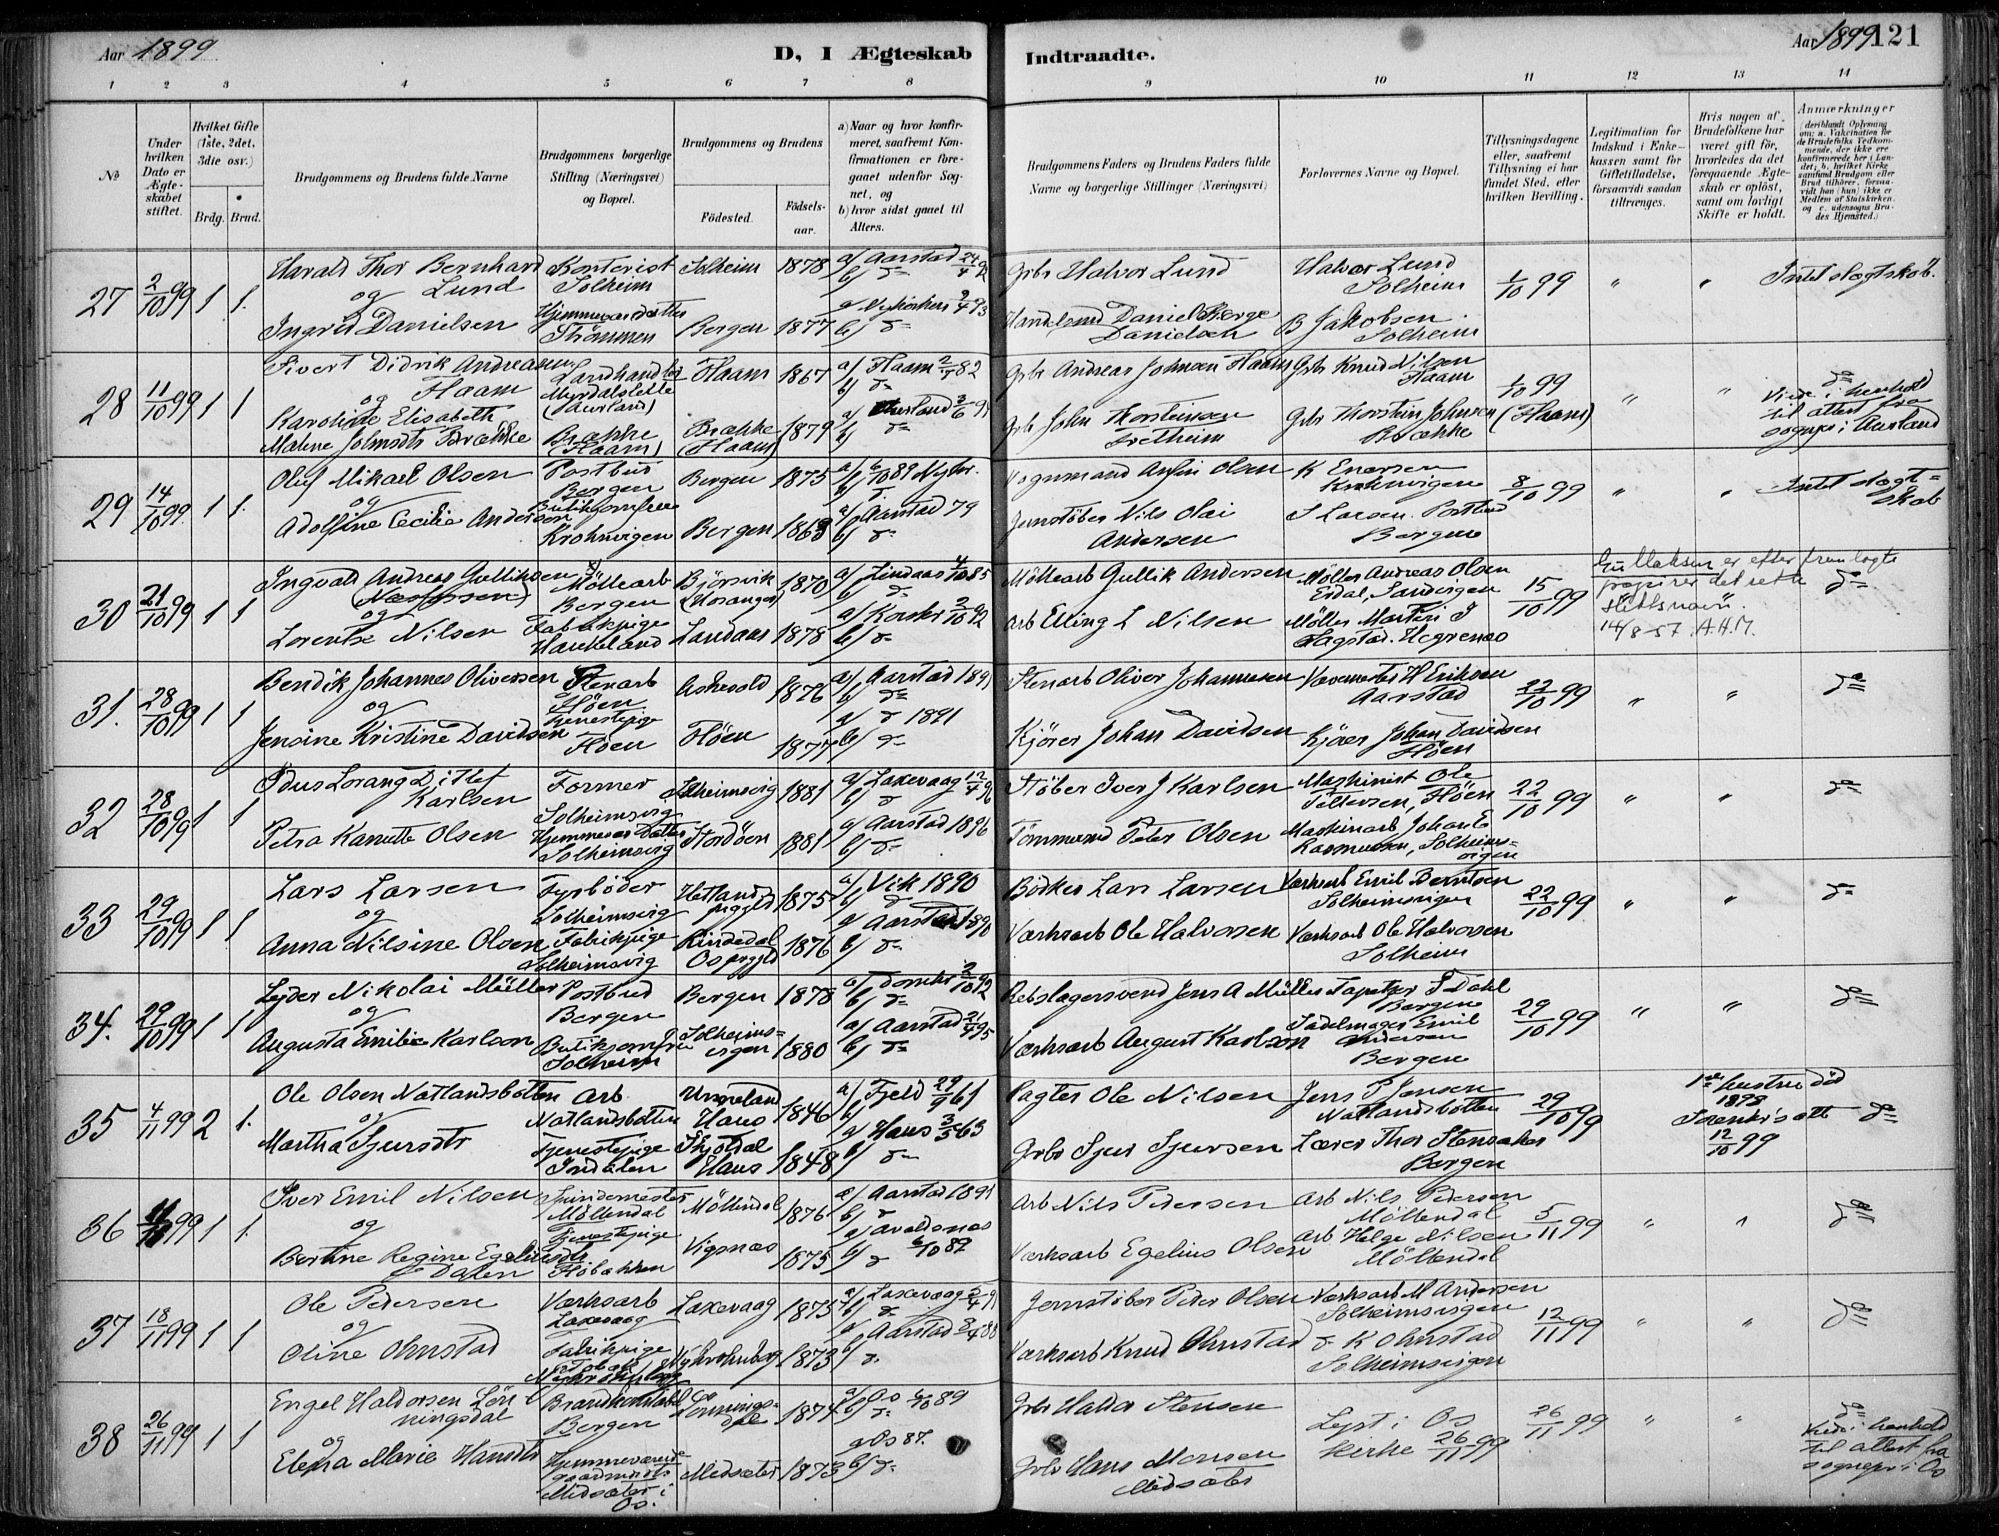 Aar 1899
D, I Ægteskab Indtraadte.
Aar 1899 121
1 2 3 4 5 6 7 8 9 10 11 12 13 14
No
Under hvilken Dato er Ægteskabet stiftet.
Hvilket Gifte (1ste, 2det, 3die osv.)
Brdg. Brud.
Brudgommens og Brudens fulde Navne
Brudgommens borgerlige Stilling (Næringsvei) og Bopæl.
Brudgommens og Brudens
Fødested.
Fødselsaar.
a) Naar og hvor konfirmeret, saafremt Konfirmationen er foregaaet udenfor Sognet, og
b) hvor sidst gaaet til Alters.
Brudgommens Faders og Brudens Faders fulde Navne og borgerlige Stillinger (Næringsvei)
Forlovernes Navne og Bopæl.
Tillysningsdagene eller, saafremt Tillysning ei har fundet Sted, efter hvilken Bevilling.
Legitimation for Indskud i Enkekassen samt for Giftetilladelse, forsaavidt saadan tiltrænges.
Hvis nogen af Brudefolkene har været gift før, hvorledes da det foregaaende Ægteskab er opløst, samt om lovligt Skifte er holdt.
Anmærkninger
(deriblandt Oplysning om: a. Vakcination for de Brudefolks Vedkommende, der ikke ere konfirmerede her i Landet; b. hvilket Kirkesamfund Brudgom eller Brud tilhører, forsaavidt han (hun) ikke er Medlem af Statskirken, og c. udensogns Brudes Hjemsted.)
27 2/10 99 1 1.
Harald Thor Bernhard Lund
og
Ingrid Danielsen
Kontorist Solheim
Solheim 1878
a) Aarstad 24/4 92
b) d
Bergen 1877
a) Nykirken 9/4 93
b) d
Grbr Halvor Lund
Halvor Lund Solheim
Danielsen
B Jakobsen Solheim
1/10 99
" "
Intet slægtskab.
28 11/10 99 1 1
Sivert Didrik Andreasen Flaam
og
Karoline Elisabeth Malene Johnsdtr Brække
Landhandler Myrdalslette (Aurland)
Flaam 1867
a) Flaam 2/7 82
b) d
Brække (Flaam)
Brække (Flaam) 1879
a) Aurland 3/6 94
b) d
Grbr Andreas Johnsen Flaam
Grbr Knud Nilsen Flaam
Grbr John Thorsteinsen Fretheim
Grbr Thorstein Johnsen Brække
1/10 99 (Flaam)
" "
d
Viede i henhold til attest fra sognepr i Aurland
29 14/10 99. 1 1.
Oluf Mikael Olsen
og
Adolfine Cecilie Andersen
Postbud Bergen
Bergen 1875
a) 6/10 89 Nykr.
b) d
Butikjomfru Krohnvigen
Bergen 1863
a) Aarstad 79
b) d
Vognmand Anfin Olsen
K Enersen Krohnvigen
Jernstøber Nils Olai Andersen
J Larsen. Postbud Bergen
8/10 99
" "
Intet slægtskab
30 21/10 99 1 1
Ingvald Andreas Gulliksen
og
Lorentze Nilsen
Møllearb Bergen
Bjørsvik (Hosanger) 1870
a) Lindaas 4/10 85
b) d
Fabrikpige Haukeland
Landaas 1878
a) Korskr 2/10 92
b) d
Møllearb Gullik Andersen
Møller Andreas Olsen Eidal, Sandvigen
Arb Elling L Nilsen
Møller Martin J Fagstad. Hegrenæs
15/10 99
Gulliksen er efter fremlagte papirer det rette slektsnavn. 14/8-57. A.H.M.
d
31. 28/10 99 1 1
Bendik Johannes Oliversen
og
Jensine Kristine Davidsen
Stenarb Fløen
Askevold 1876
a) Aarstad 1891
b) d
Tjenestepige Fløen
Fløen 1877
a) d 1891
b) d
Stenarb Oliver Johannesen
Vævemester H Eriksen Aarstad
Kjører Johan Davidsen
Kjører Johan Davidsen Fløen
22/10 99
" "
d
32 28/10 99 1 1
Idus Lorang Ditlef Karlsen
Petra Kamette Olsen
Former Solheimsvig
Solheimsvig 1881
a) Laxevaag 12/4 96
b) d
Hjemmevær Datter Solheimsvig
Stordøen 1881
a) Aarstad 1896
b) d
Støber Iver J Karlsen
Maskinist Ole Pettersen, Fløen
Tømmermd Peter Olsen
Maskinarb Johan E Rasmussen, Solheimsvigen
22/10 99
" "
d
33 29/10 99 1 1
Lars Larsen
og
Anna Nilsine Olsen
Fyrbøder Solheimsvig
Hetland prgjld 1875
a) Vik 1890
b) d
Fabrikpige Solheimsvig
Rindedal Os prgjld 1876
a) Aarstad 1890
b) d
Bødker Lars Larsen
Værksarb Emil Berntsen Solheimsvigen
Værksarb Ole Halvorsen
Værksarb Ole Halvorsen Solheim
22/10 99
" "
d
34. 29/10 99 1 1
Lyder Nikolai Müller
og
Augusta Emilie Karlson
Postbud Bergen
Bergen 1878
a) Domkr 2/10 92
b) d
Butikjomfru Solheim
Solheimsvigen 1880
a) Aarstad 21/4 95
b) d
Rebslagersvend Jens A Müller
Tapetser F Dahl Bergen
Værksarb August Karlson
Sadelmager Emil Andersen Bergen
29/10 99
" "
d
35 4/11 99 2 1.
Ole Olsen Natlandsbotten
og
Martha Sjursdtr
Arb Natlandsbotten
Haus 1846
a) Fjeld 29/9 61
b)
Tjenestepige Indalen
Haus 1848
a) Haus 3/5 63
b) d
Pagter Ole Nilsen
Jens P Jensen Natlandsbotten
Grbr Sjur Sjursen
Lærer Thor Stensaker Bergen
29/10 99
1e hustru død 1898
Skifter's att 12/10 99
d
36 99 1 1.
Iver Emil Nilsen
og
Bertine Regine Egeliusdtr Dalen
Spindemester Møllendal
Møllendal 1876
a) Aarstad 1891
b) d
Tjenestepige Fløbakken
Vigsnæs 1875
a) Avaldsnæs 6/10 89
b) d
Arb Nils Pedersen
Arb Nils Pedersen Møllendal
Værksarb Egelius Olsen
Arb Helge Nilsen Møllendal
5/11 99
" "
d
37 18/11 99 1 1
Ole Pedersen
og
Oline Ohnstad
Værksarb Laxevaag
Laxevaag 1875
a) Laxevaag 3/4 91
b) d
Fabrikpige
Nykrohnborg 1873
a) Aarstad 8/4 88
b) d
Jernstøber Peder Olsen
Værksarb M Andersen Solheimsvigen
Værksarb Knud Ohnstad
d K Ohnstad Solheimsvigen
12/11 99
" "
d
38 26/11 99 1 1
Engel Haldorsen Lønningsdal
og
Elena Marie Hansdtr
Brandkonstabel Bergen
Lønningsdal 1874
a) Os 6/10 89
b) d
Hjemmeværende gaardmandsdtr Midsæter i Os.
Midsæter 1873
a) Os 87.
b) d
Grbr Haldor Stensen
Lyst i Os kirke 26/11 99
Grbr Hans Monsen Midsæter
26/11 99
" "
d
Viede i henhold til attest fra sognepr i Os